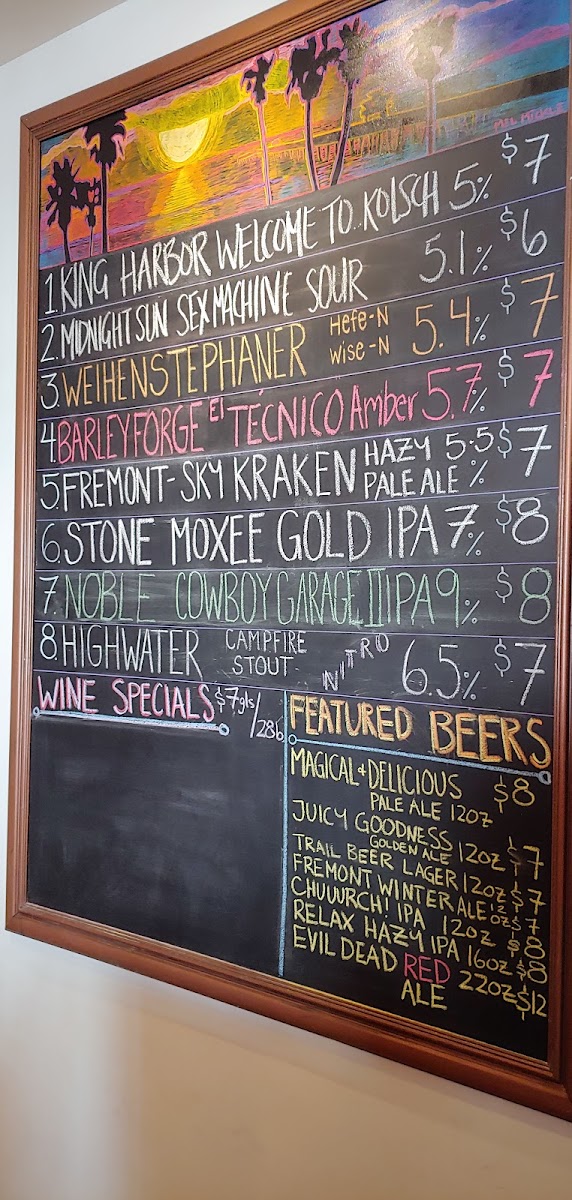 MEL MICKLE
1. KING HARBOR WELCOME TO.. KOLSCH 5% $7
2. MIDNIGHT SUN SEX MACHINE SOUR 5.1% $6
3. WEIHENSTEPHANER Hefe-N Wise-N 5.4% $7
4. BARLEY FORGE El TÉCNICO Amber 5.7% $7
5. FREMONT-SKY KRAKEN HAZY PALE ALE 5.5% $7
6. STONE MOXEE GOLD IPA 7% $8
7. NOBLE COWBOY GARAGE IIIPA 9% $8
8. HIGHWATER CAMPFIRE STOUT NITRO 6.5% $7
WINE SPECIALS $7gls/28b
FEATURED BEERS
MAGICAL + DELICIOUS $8
PALE ALE 12OZ
JUICY GOODNESS
GOLDEN ALE 12OZ $7
TRAIL BEER LAGER 12OZ $7
FREMONT WINTER ALE 12OZ $7
CHUUURCH! IPA 12OZ $8
RELAX HAZY IPA 16OZ $8
EVIL DEAD RED 22OZ $12
ALE